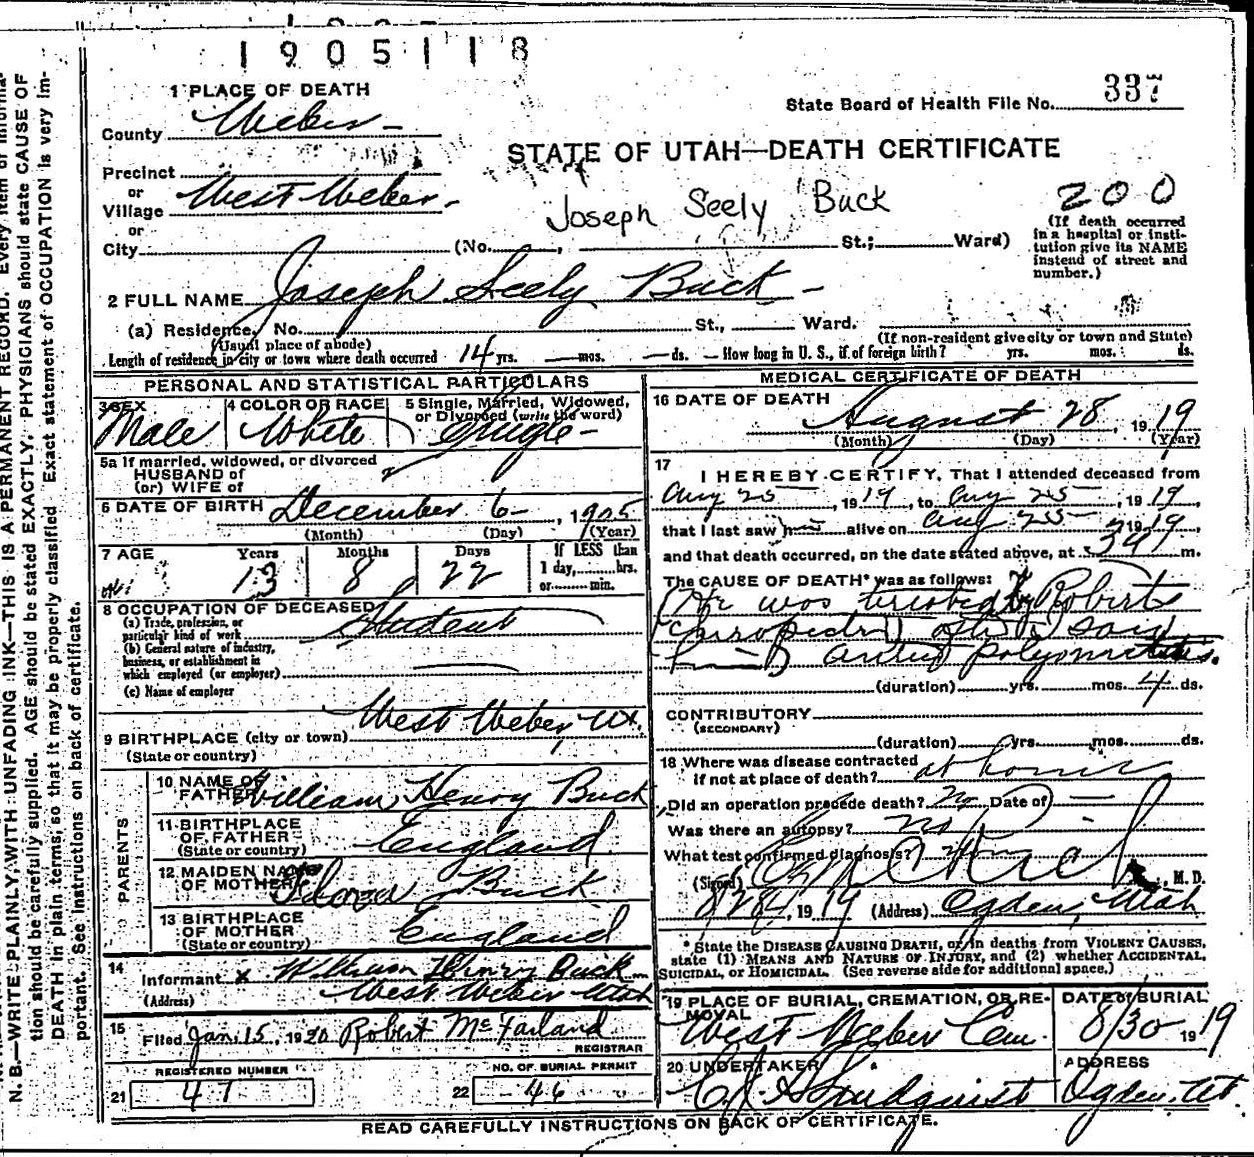 1905118
1 PLACE OF DEATH
State Board of Health File No. 337
County Weber
STATE OF UTAH—DEATH CERTIFICATE
Precinct
or
Village West Weber
or
Joseph Seely Buck
200
City (No. , St.; Ward)
(If death occurred in a hospital or institution give its NAME instead of street and number.)
2 FULL NAME Joseph Seely Buck
(a) Residence, No. St., Ward.
(Usual place of abode)
(If non-resident give city or town and State)
Length of residence in city or town where death occurred 14 yrs. — mos. — ds. How long in U. S., if of foreign birth? yrs. mos. ds.
PERSONAL AND STATISTICAL PARTICULARS
3 SEX Male
4 COLOR OR RACE White
5 Single, Married, Widowed, or Divorced (write the word) Single
5a If married, widowed, or divorced
HUSBAND of
(or) WIFE of
6 DATE OF BIRTH December 6, 1905
(Month) (Day) (Year)
7 AGE Years 13 Months 8 Days 22
If LESS than 1 day, hrs. or min.
8 OCCUPATION OF DECEASED
(a) Trade, profession, or particular kind of work Student
(b) General nature of industry, business, or establishment in which employed (or employer)
(c) Name of employer
9 BIRTHPLACE (city or town) West Weber, Ut.
(State or country)
PARENTS
10 NAME OF FATHER William Henry Buck
11 BIRTHPLACE OF FATHER England
(State or country)
12 MAIDEN NAME OF MOTHER Buck
13 BIRTHPLACE OF MOTHER England
(State or country)
14 Informant x William Henry Buck
(Address) West Weber Utah
15 Filed Jan. 15, 1920 Robert McFarland
REGISTRAR
REGISTERED NUMBER
21 47
NO. OF BURIAL PERMIT
22 46
MEDICAL CERTIFICATE OF DEATH
16 DATE OF DEATH August 28, 1919
(Month) (Day) (Year)
17 I HEREBY CERTIFY, That I attended deceased from
Aug 25, 1919, to Aug 25, 1919,
that I last saw h alive on Aug 25 1919
and that death occurred, on the date stated above, at m.
The CAUSE OF DEATH* was as follows:
He was treated by Roberts
(duration) yrs. mos. 4 ds.
CONTRIBUTORY
(SECONDARY)
(duration) yrs. mos. ds.
18 Where was disease contracted
if not at place of death? at home
Did an operation precede death? No Date of —
Was there an autopsy? no
What test confirmed diagnosis?
(Signed) , M. D.
8/28, 1919 (Address) Ogden, Utah
* State the DISEASE CAUSING DEATH, or, in deaths from VIOLENT CAUSES, state (1) MEANS AND NATURE OF INJURY, and (2) whether ACCIDENTAL, SUICIDAL, or HOMICIDAL. (See reverse side for additional space.)
19 PLACE OF BURIAL, CREMATION, OR REMOVAL
West Weber Cem.
DATE of BURIAL
8/30 1919
20 UNDERTAKER
Lindquist
ADDRESS
Ogden, Ut.
READ CAREFULLY INSTRUCTIONS ON BACK OF CERTIFICATE.
N. B.—WRITE PLAINLY, WITH UNFADING INK—THIS IS A PERMANENT RECORD. Every item of informa-
tion should be carefully supplied. AGE should be stated EXACTLY. PHYSICIANS should state CAUSE OF
DEATH in plain terms, so that it may be properly classified. Exact statement of OCCUPATION is very im-
portant. See instructions on back of certificate.